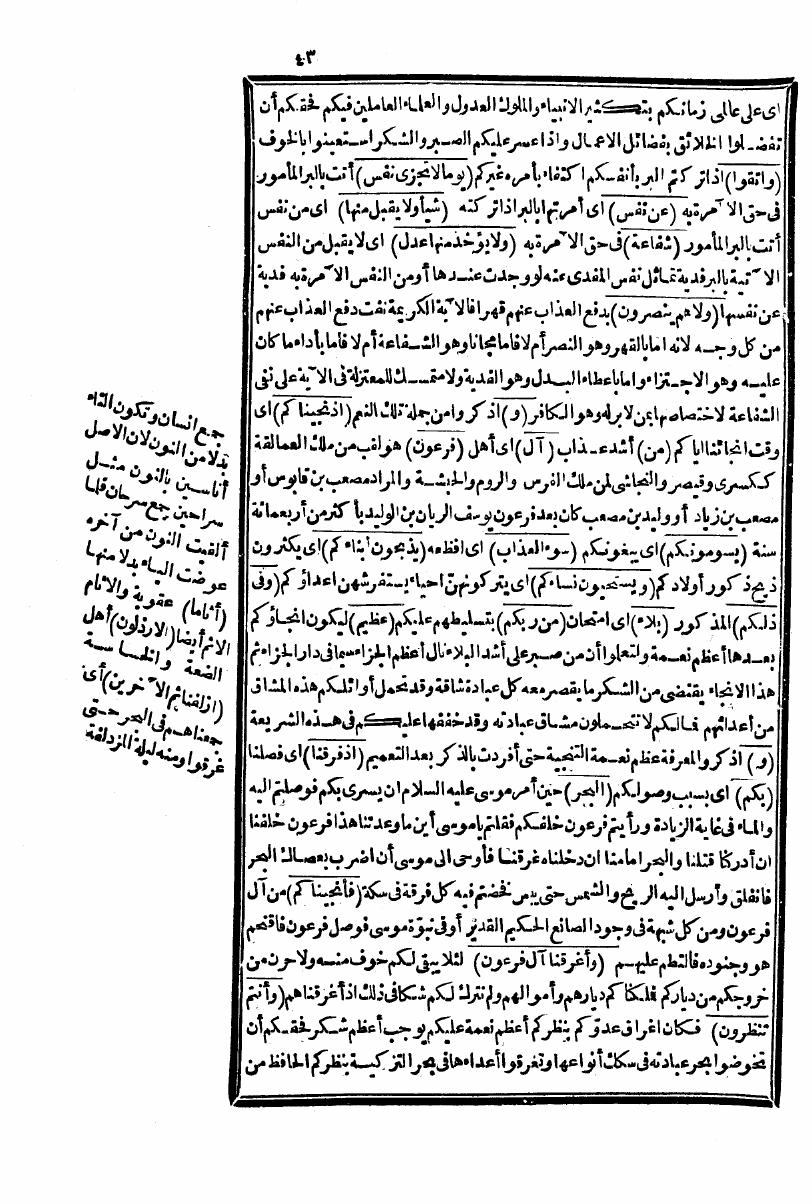 ٤٣
اى على عالمى زمانكم بتكثير الانبياء والملوك العدول والعلماء العاملين فيكم فحقكم أن
تفضلوا الخلائق بفضائل الاعمال واذا عسر عليكم الصبر والشكر استعينوا بالخوف
(واتقوا) اذا تركتم البر بأنفسكم اكتفاء بأمره غيركم (يوما لا تجزى نفس) أتت بالبر المأمور
فى حق الآمرة به (عن نفس) اى أمرتها بالبر اذا تركته (شيأ ولا يقبل منها) اى من نفس
أتت بالبر المأمور (شفاعة) فى حق الآمرة به (ولا يؤخذ منها عدل) اى لا يقبل من النفس
الآتية بالبر فدية تماثل نفس المفدى عنه لو وجدت عندها أو من النفس الآمرة به فدية
عن نفسها (ولا هم ينصرون) بدفع العذاب عنهم قهرا فالآية الكريمة نفت دفع العذاب عنهم
من كل وجه لانه اما بالقهر وهو النصر أم لا فاما مجانا وهو الشفاعة أم لا فاما بأداء ما كان
عليه وهو الاجتزاء واما باعطاء البدل وهو الفدية ولا متمسك للمعتزلة فى الآية على نفى
الشفاعة لاختصاصها بمن لا بر له وهو الكافر (و) اذكروا من جملة تلك النعم (اذ نجيناكم) اى
وقت انجائنا اياكم (من) أشد عذاب (آل) اى أهل (فرعون) هو لقب من ملك العمالقة
ككسرى وقيصر والنجاشى لمن ملك الفرس والروم والحبشة والمراد مصعب بن قابوس أو
مصعب بن زياد أو وليد بن مصعب كان بعد فرعون يوسف الريان بن الوليد بأكثر من أربعمائة
سنة (يسومونكم) اى يبغونكم (سوء العذاب) اى افظعه (يذبحون أبناءكم) اى يكثرون
ذبح ذكور أولادكم (ويستحيون نساءكم) اى يتركونهن احياء يستفرشهن اعداؤكم (وفى
ذلكم) المذكور (بلاء) اى امتحان (من ربكم) بتسليطهم عليكم (عظيم) ليكون انجاؤكم
بعدها أعظم نعمة ولتعلموا أن من صبر على أشد البلاء نال أعظم الجزاء سيما فى دار الجزاء ثم
هذا الانجاء يقتضى من الشكر ما يقصر معه كل عبادة شاقة وقد تحمل أوائلكم هذه المشاق
من أعدائهم فمالكم لا تتحملون مشاق عبادته وقد خففها عليكم فى هذه الشريعة
(و) اذكروا لمعرفة عظم نعمة التنجية حتى أفردت بالذكر بعد التعميم (اذ فرقنا) اى فصلنا
(بكم) اى بسبب وصولكم (البحر) حين أمر موسى عليه السلام ان يسرى بكم فوصلتم اليه
والماء فى غاية الزيادة ورأيتم فرعون خلفكم فقلتم يا موسى أين ما وعدتنا هذا فرعون خلفنا
ان أدركنا قتلنا والبحر امامنا ان دخلناه غرقنا فأوحى الى موسى أن اضرب بعصاك البحر
فانفلق وأرسل اليه الريح والشمس حتى يبس فخضتم فيه كل فرقة فى سكة (فأنجيناكم) من آل
فرعون ومن كل شبهة فى وجود الصانع الحكيم القدير أو فى نبوة موسى فوصل فرعون فاقتحم
هو وجنوده فالتطم عليهم (وأغرقنا آل فرعون) لئلا يبقى لكم خوف منه ولا حزن من
خروجكم من دياركم فملكناكم ديارهم وأموالهم ولم نترك لكم شكا فى ذلك اذ أغرقناهم (وأنتم
تنظرون) فكان اغراق عدوكم بنظركم أعظم نعمة عليكم يوجب أعظم شكر فحقكم أن
تخوضوا بحر عبادته فى سكك أنواعها وتغرقوا أعداءها فى بحر التزكية بنظركم الحافظ من
جمع انسان وتكون الثاء
بدلا من النون لان الاصل
أناسين بالنون مثل
سراحين جمع سرحان فلما
ألقيت النون من آخره
عوضت الياء بدلا منها
(أثاما) عقوبة والاثام
الاثم أيضا (الارذلون) أهل
الضعة والخساسة
(ازلفنا ثم الآخرين) أى
جمعناهم فى البحر حتى
غرقوا ومنه ليلة المزدلفة